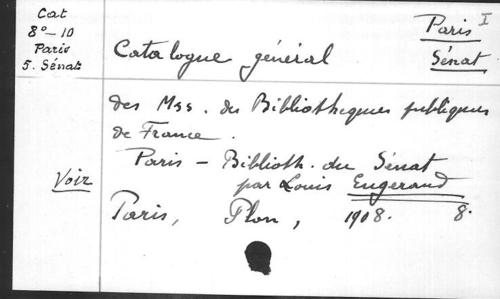 Cat
8°-10
Paris
5. Sénat
Paris I
Sénat
Catalogue général
des Mss. des Bibliothèques publiques
de France.
Paris - Biblioth. du Sénat
Voir
par Louis Engerand
Paris, Plon, 1908. 8.